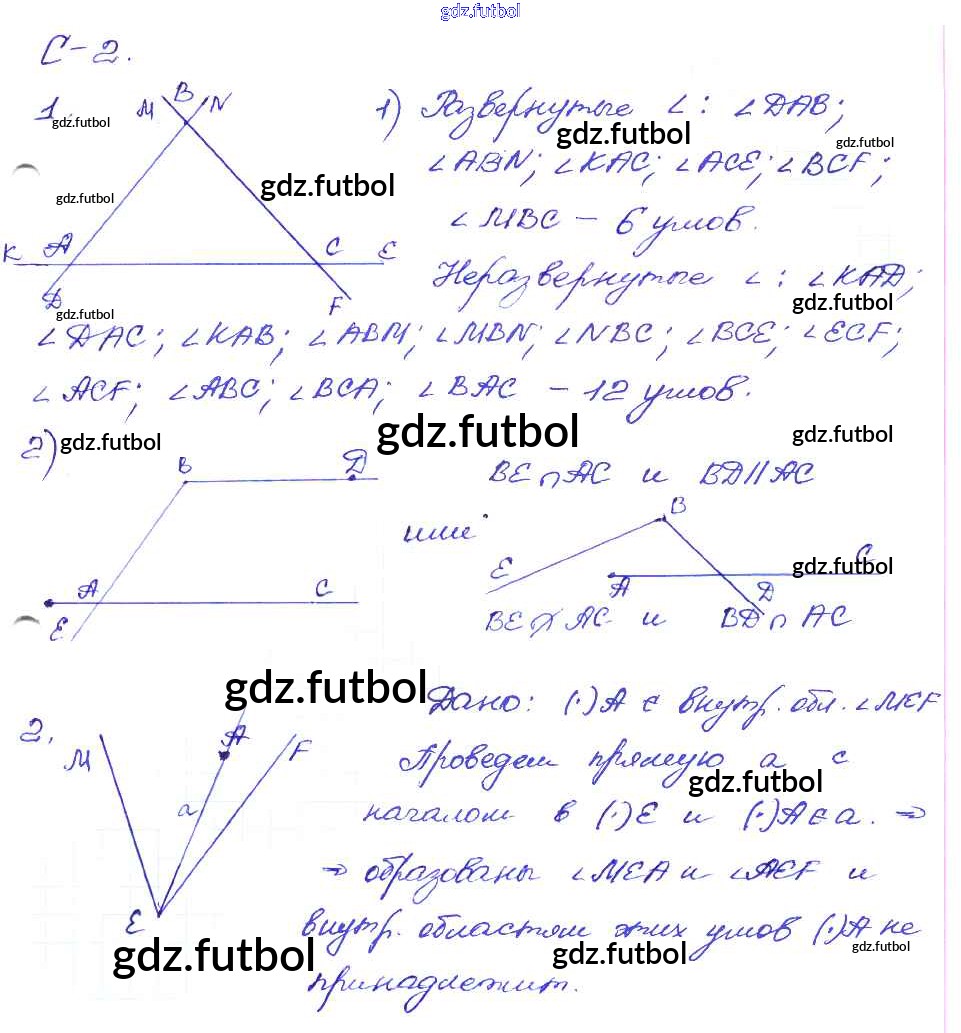 gdz.futbol
С-2.
1.
gdz.futbol
M B N
gdz.futbol
gdz.futbol
K A C E
D F
gdz.futbol
1) Развернутые ∠: ∠DAB;
gdz.futbol
gdz.futbol
∠ABN; ∠KAC; ∠ACE; ∠BCF;
∠MBC - 6 углов.
Неразвернутые ∠: ∠KAD;
gdz.futbol
∠DAC; ∠KAB; ∠ABM; ∠MBN; ∠NBC; ∠BCE; ∠ECF;
∠ACF; ∠ABC; ∠BCA; ∠BAC - 12 углов.
gdz.futbol
gdz.futbol
gdz.futbol
2)
B D
A C
E
BE∩AC и BD∥AC
или
B
E
A D C
gdz.futbol
BE∩̸AC и BD∩AC
gdz.futbol
2.
M A F
a
E
gdz.futbol
Дано: (·)A ∈ внутр. обл. ∠MEF
Проведем прямую a с
gdz.futbol
началом в (·)E и (·)A∈a. ⇒
⇒ образованы ∠MEA и ∠AEF и
внутр. областям этих углов (·)A не
gdz.futbol
gdz.futbol
принадлежит.